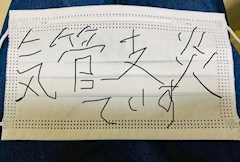 気管支炎
です